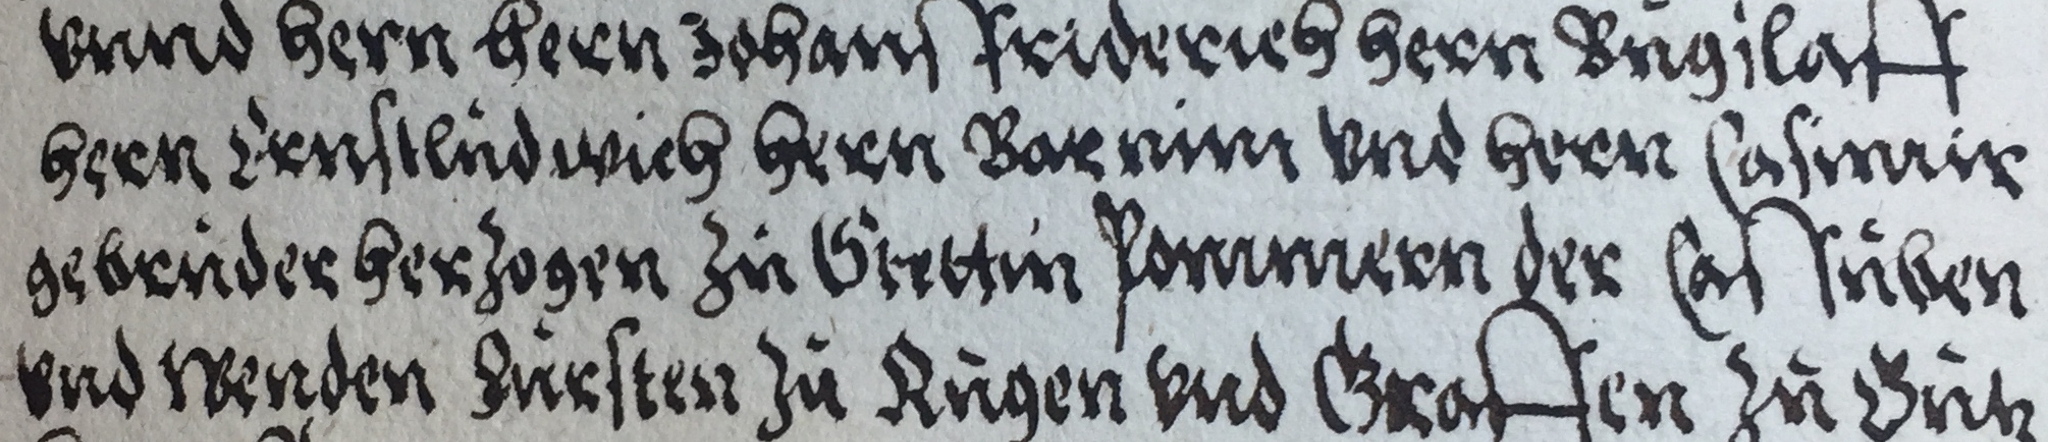 vnnd hern hern Johans friderich hern Bugislaff
hern Ernstludwich hern Barnim vnd hern Casimir
gebruder herzogen zu Stettin Pommern der Cassuben
vnd Wenden Fursten zu Rugen vnd Graffen zu Gutz